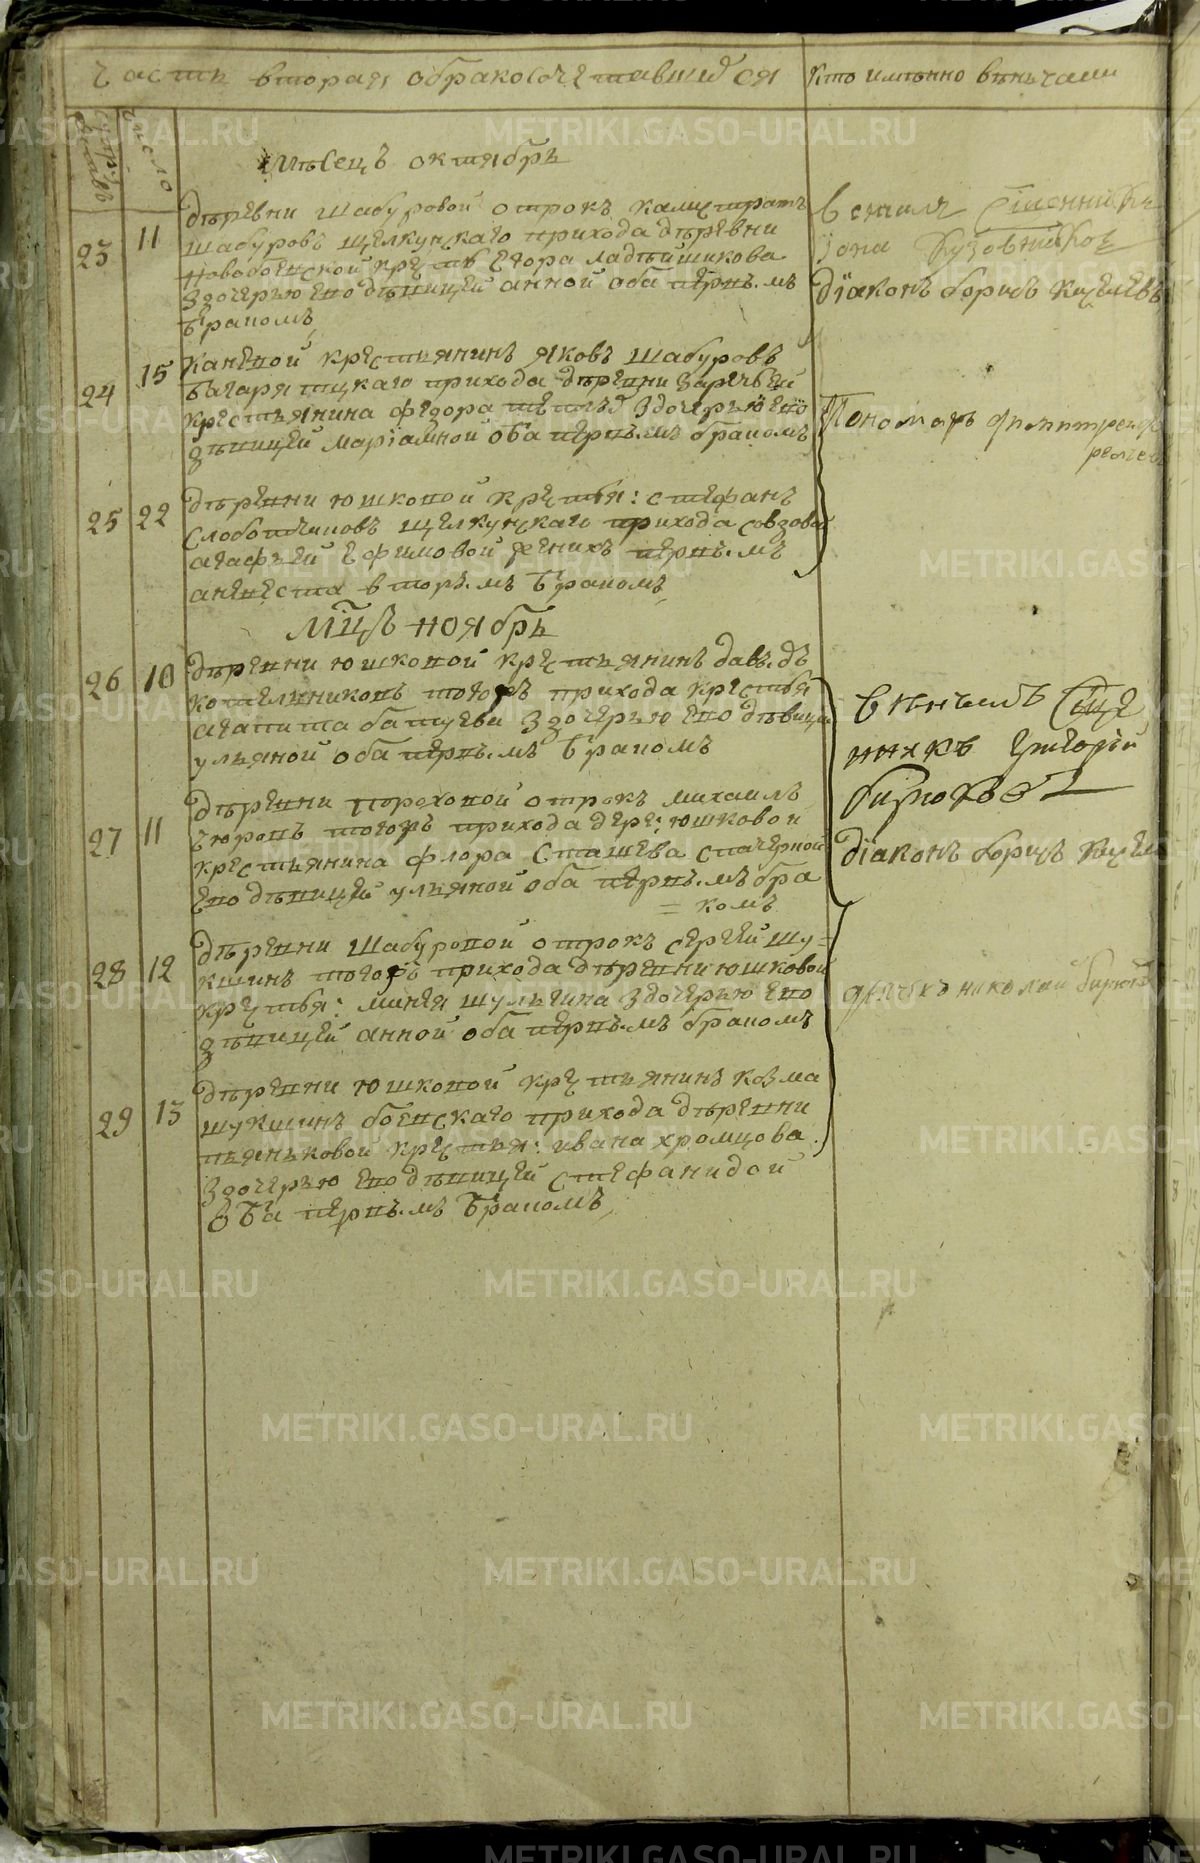 часть вторая о бракосочетавшихся
кто именно венчали
число
мѣсецъ октябрь
23
11
дѣревни шабуровой отрокъ калистратъ
шабуровъ щелкунскаго прихода дѣревни
новобоевской крестья Егора ладейщикова
здочерью Его дѣвицей анной оба первымъ
бракомъ
венчалъ священникъ
Iона Кузовниковъ
Дiаконъ борисъ Киселевъ
24
15
яковъ шабуровъ
прихода дѣревни заречьей
крестьянина федора здочерью Его
дѣвицей марiамной оба первымъ бракомъ
Пономарь
25
22
дѣревни юшковой крестья: стефанъ
щелкунскаго прихода со вдовой
агафьей Ефимовой женихъ первымъ
а невеста вторымъ бракомъ
мцъ ноябрь
26
10
дѣревни юшковой крестьянинъ давыдъ
котельниковъ тогожъ прихода крестья
агапита батуева здочерью Его дѣвицей
ульяной оба первымъ бракомъ
венчалъ Свще
нникъ Григорiй
бирюковъ
27
11
дѣревни пороховой отрокъ михаилъ
чюровъ тогожъ прихода дере: юшковой
крестьянина флора сташева
Его дѣвицей ульяной оба первымъ бра
= комъ
Дiаконъ борисъ Кисел
28
12
дѣревни шабуровой отрокъ сергей шу=
кшинъ тогожъ прихода дѣревни юшковой
крестья: минея шульгина здочерью Его
дѣвицей анной оба первымъ бракомъ
дьячекъ николай
29
13
дѣревни юшковой крестьянинъ козма
шукшинъ боевскаго прихода дѣревни
пьянковой крестья: ивана хромцова
здочерью Его дѣвицей стефанидой
оба первымъ бракомъ
METRIKI.GASO-URAL.RU